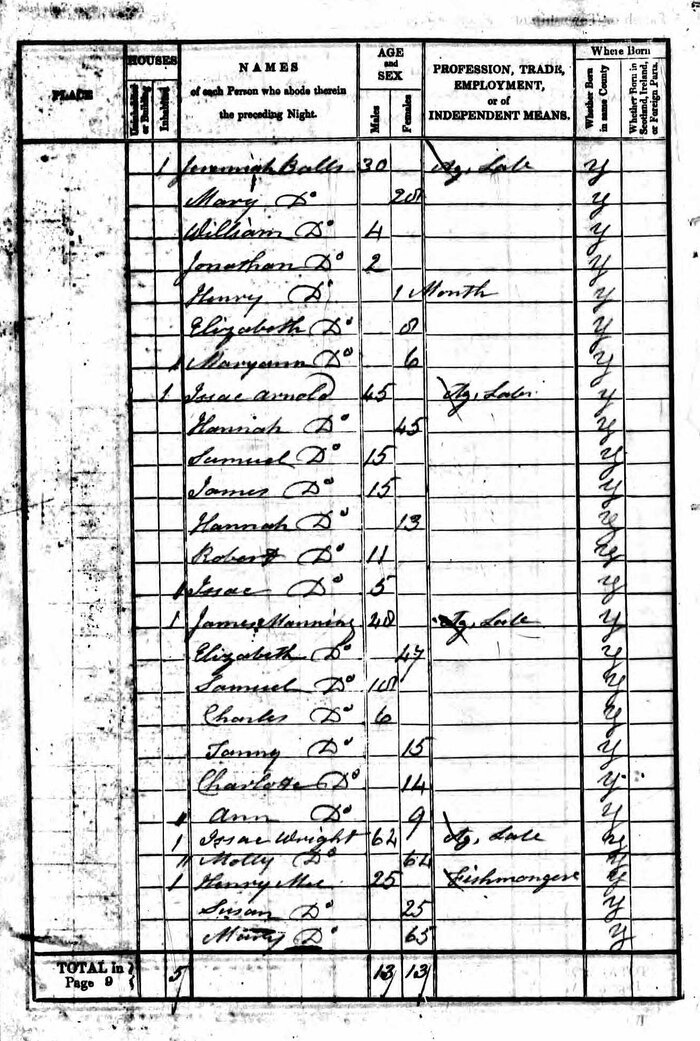 PLACE HOUSES Uninhabited or Building Inhabited NAMES of each Person who abode therein the preceding Night. AGE and SEX Males Females PROFESSION, TRADE, EMPLOYMENT, or of INDEPENDENT MEANS. Where Born Whether Born in same County Whether Born in Scotland, Ireland, or Foreign Parts.
1 Jeremiah Balls 30 Ag. Lab Y
Mary Do 28 Y
William Do 4 Y
Jonathan Do 2 Y
Henry Do 1 Month Y
Elizabeth Do 8 Y
Maryann Do 6 Y
1 Issac Arnold 45 Ag. Lab Y
Hannah Do 45 Y
Samuel Do 15 Y
James Do 15 Y
Hannah Do 13 Y
Robert Do 11 Y
Issac Do 5 Y
1 James Manning 48 Ag. Lab Y
Elizabeth Do 47 Y
Samuel Do 18 Y
Charles Do 6 Y
Fanny Do 15 Y
Charlotte Do 14 Y
" Ann Do 9 Y
1 Issac Wright 62 Ag. Lab Y
" Molly Do 62 Y
1 Henry 25 Fishmonger Y
Susan Do 25 Y
Mary Do 65 Y
TOTAL in Page 9 5 13 13